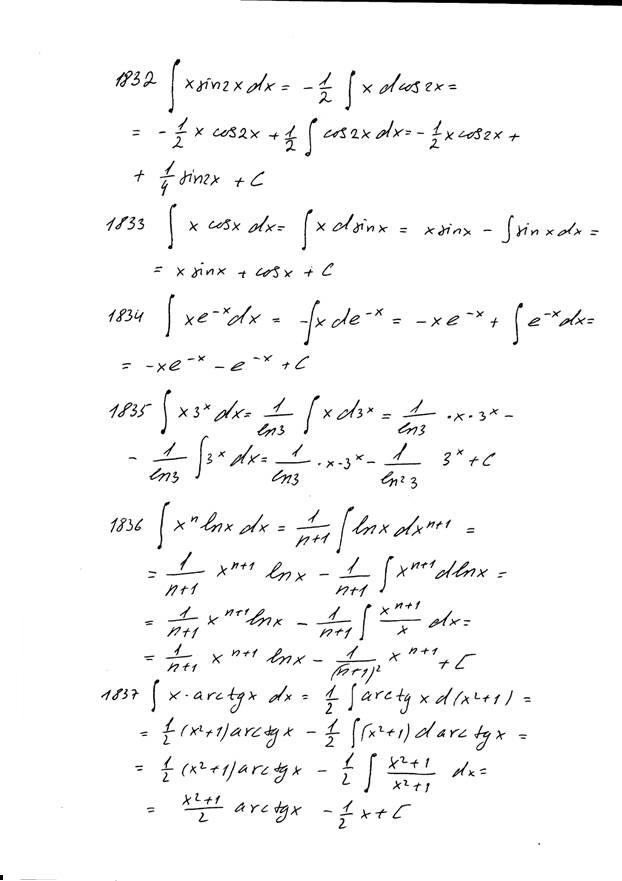 1832 ∫ x sin2x dx = - 1/2 ∫ x d cos2x =
= - 1/2 x cos2x + 1/2 ∫ cos2x dx = - 1/2 x cos2x +
+ 1/4 sin2x + C
1833 ∫ x cosx dx = ∫ x d sinx = x sinx - ∫ sinx dx =
= x sinx + cosx + C
1834 ∫ xe^{-x} dx = -∫ x de^{-x} = -xe^{-x} + ∫ e^{-x} dx =
= -xe^{-x} - e^{-x} + C
1835 ∫ x3^x dx = 1/ln3 ∫ x d3^x = 1/ln3 · x · 3^x -
- 1/ln3 ∫ 3^x dx = 1/ln3 · x · 3^x - 1/ln²3 3^x + C
1836 ∫ x^n lnx dx = 1/(n+1) ∫ lnx dx^{n+1} =
= 1/(n+1) x^{n+1} lnx - 1/(n+1) ∫ x^{n+1} d lnx =
= 1/(n+1) x^{n+1} lnx - 1/(n+1) ∫ x^{n+1}/x dx =
= 1/(n+1) x^{n+1} lnx - 1/(n+1)² x^{n+1} + C
1837 ∫ x · arctgx dx = 1/2 ∫ arctg x d(x²+1) =
= 1/2 (x²+1) arctgx - 1/2 ∫ (x²+1) d arctgx =
= 1/2 (x²+1) arctgx - 1/2 ∫ (x²+1)/(x²+1) dx =
= (x²+1)/2 arctgx - 1/2 x + C